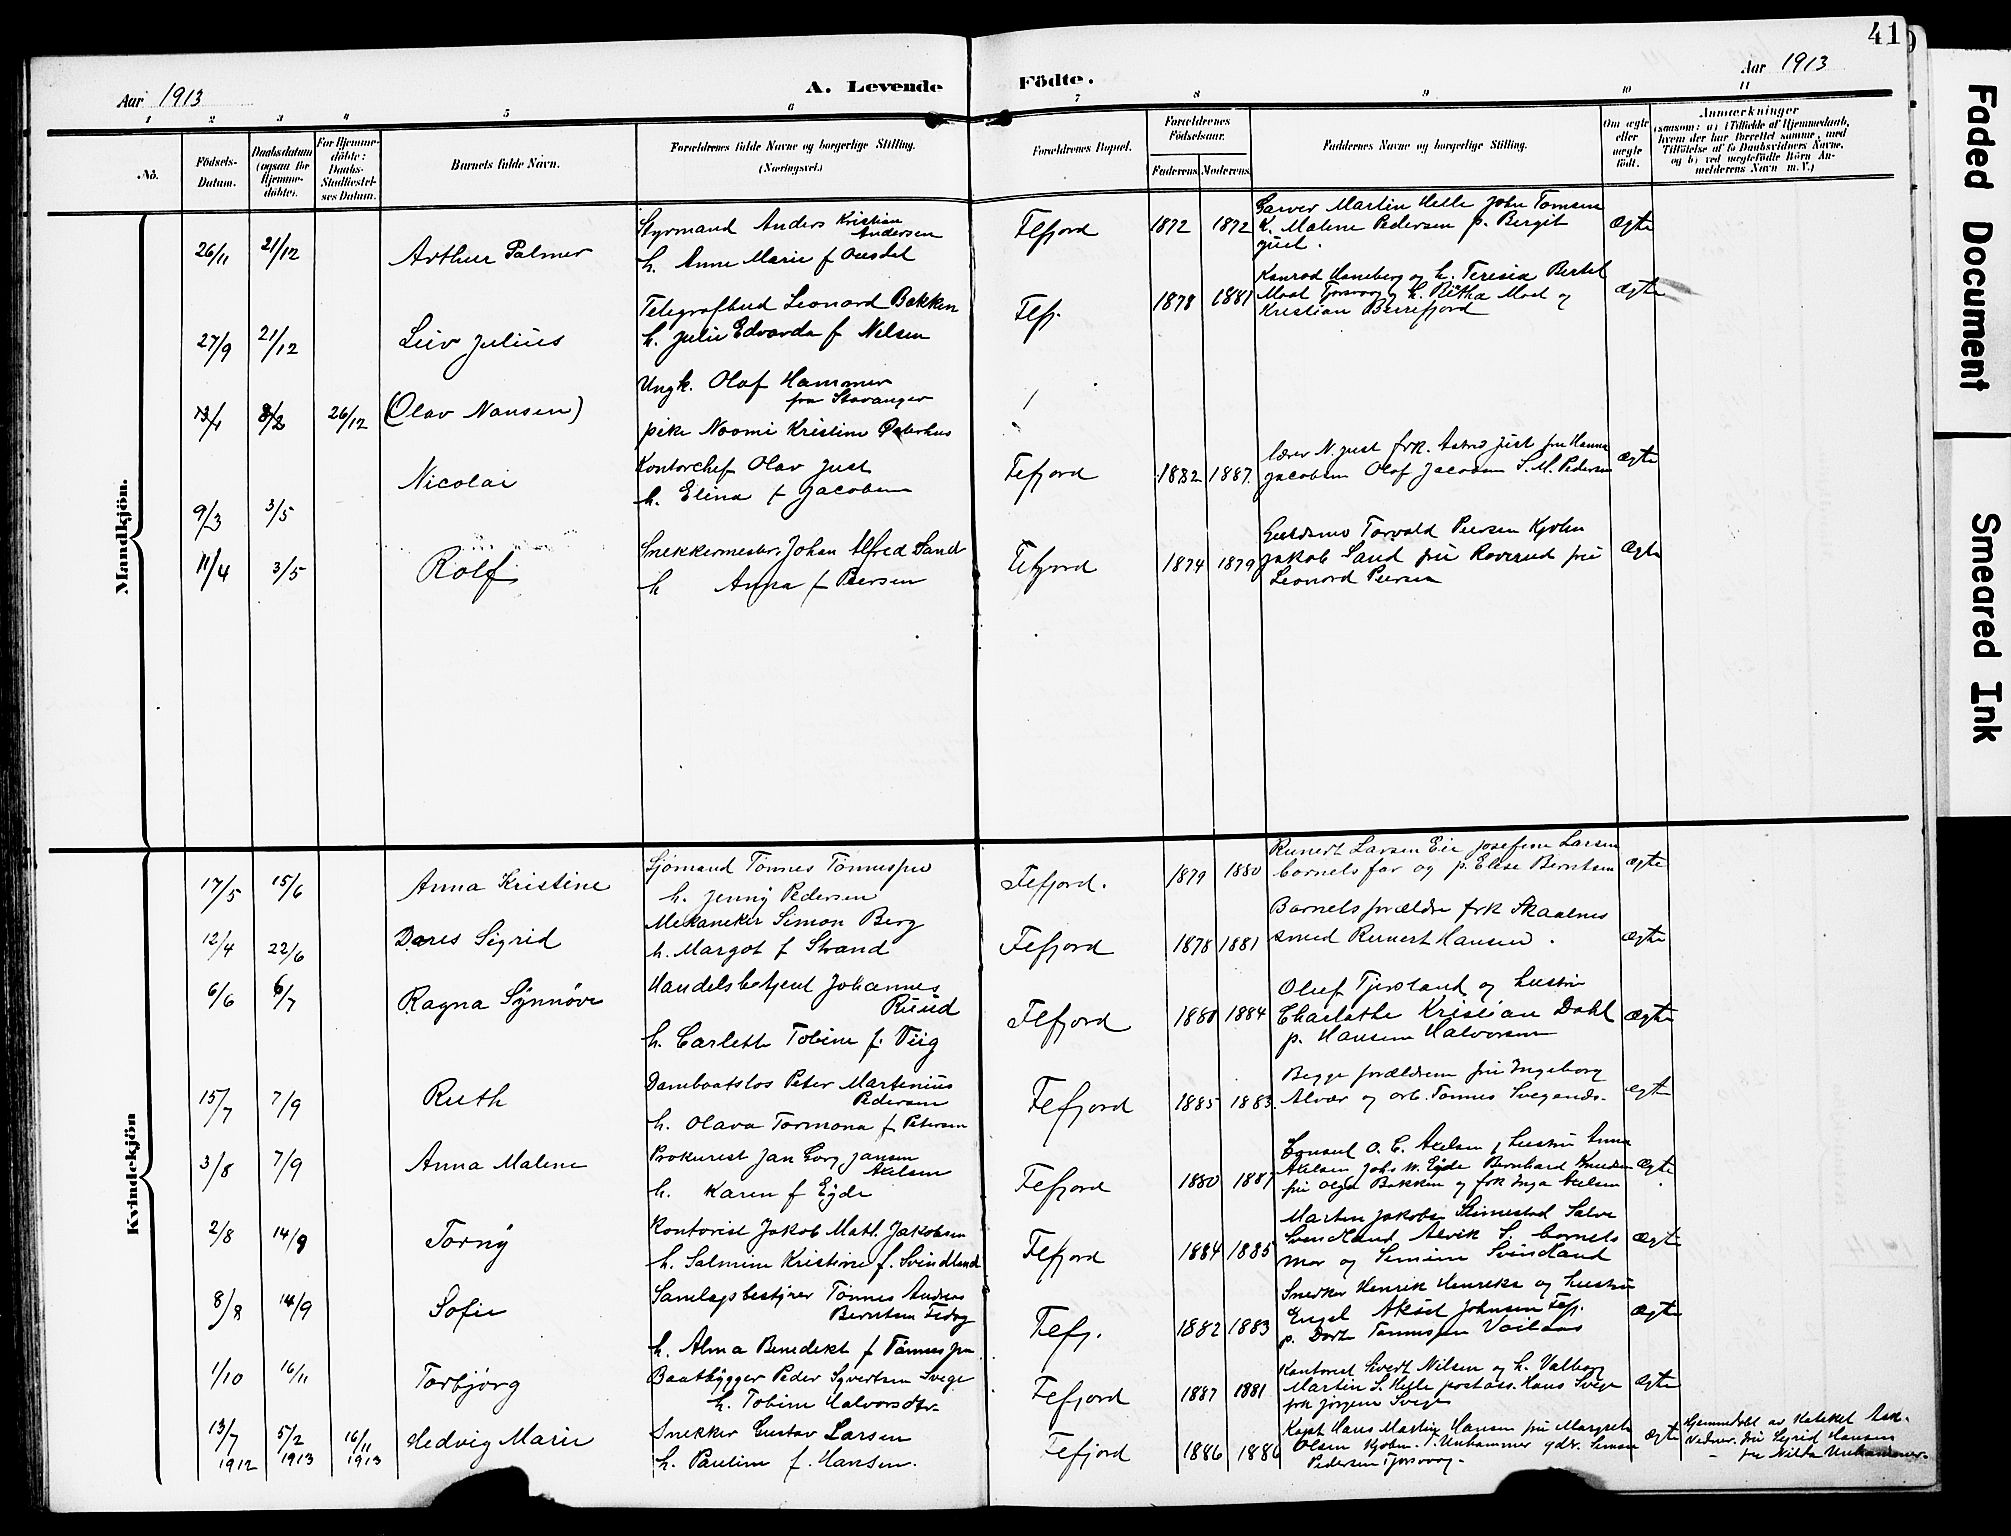 41
Aar 1913
A. Levende
Födte.
Aar 1913
1 2 3 4 5 6 7 8 9 10 11
No.
Födsels-
Datum.
Daabsdatum
(ogsaa for
Hjemme-
döbte).
For Hjemme-
döbte:
Daabs-
Stadfæstel-
ses Datum.
Barnets fulde Navn.
Forældrenes fulde Navne og borgerlige Stilling.
(Næringsvei.)
Forældrenes Bopæl.
Forældrenes
Födselsaar.
Faderens. Moderens.
Faddernes Navne og borgerlige Stilling.
Om ægte
eller
uægte
födt.
Anmærkninger
(saasom: a) i Tilfælde af Hjemmedaab,
hvem der har forrettet samme, med
Tilföielse af to Daabsvidners Navne,
og b) ved uægtefödte Börn An-
melderens Navn m. V.)
Mandkjön.
26/11 21/12 Arthur Palmer
Styrmand Anders Kristian
Andersen
h. Anne Marie f Ousdal
Flefjord 1872 1872
Garver Martin Helle John Tomsen
K. Malene Pedersen p. Bergit
juel.
ægte
27/9 21/12 Leiv Julius
Telegrafbud Leonard Bakken
h. Julie Edvarda f Nelsen
Flefj. 1878 1881
Konrad Haneberg og h. Teresia Bertel
Moal Tjorsvog h. Bertha Moal og
Kristian Berrefjord
ægte
13/1 8/2 26/12 (Olav Nansen)
Ungk. Olaf Hammer
fra Stavanger
pike Noomi Kristine Østerhus
9/3 3/5 Nicolai
Kontorchef Olav Just
h. Elina f Jacobsen
Flefjord 1882 1887
lærer N. Just frk. Astrid Just fru Hanna
Jacobsen Olaf Jacobsen S. M. Pedersen
ægte
11/4 3/5 Rolf
Snekkermester Johan Alfred Sand
h Anna f Peersen
Flefjord 1874 1879
Guldsme Torvald Peersen Kjøbm
Jakob Sand fru Roverud fru
Leonord Peersen
ægte
Kvindekjön
17/5 15/6 Anna Kristine
Sjømand Tønnes Tønnesen
h. Jenny Pedersen
Flefjord. 1879 1880
Reinert Larsen Eie Josefine Larsen
barnets far og p. Elise Berntsen
ægte
12/4 22/6 Dores Sigrid
Mekaneker Simon Berg
h. Margot f Strand
Flefjord 1878 1881
Barnets forældre frk Skaalnes
smed Reinert Hansen.
ægte
6/6 6/7 Ragna Synnøve
Handelsbetjent Johannes
Ruud
h. Carlette Tobine f. Viig
Flefjord 1880 1884
Oluf Tjersland og hustru
Charlothe Kristian Dahl
p. Hansine Halvorsen
ægte
15/7 7/9 Ruth
Dambaatslos Peter Martenius
Pedersen
h. Olava Tormona f Petersen
Flefjord 1885 1883.
Begge forældrene fru Ingeborg
Alvær og arb. Tønnes Svegends.
ægte
3/8 7/9 Anna Malene
Prokurist Jan Georg Jansen
Axelsen
h. Karen f Eyde
Flefjord 1880 1887
Konsul O. C. Axelsen, hustru Anna
Axelsen Johs W. Eyde Bernhard Knudsen
fru Olga Bakken og frk Inga Axelsen
ægte
2/8 14/9 Torny
Kontorist Jakob Math. Jakobsen
h. Salmine Kristine f. Svindland
Flefjord 1884 1885
Marten Jakobs Stimestad Salve
Svindland Alvik S. barnets
mor og Simine Svindland
ægte
8/8 14/9 Sofie
Samlagsbestyrer Tønnes Andreas
Berntsen Fedog
h. Alma Benedikt f Tønnesen
Flefj. 1882 1883
Snedker Henrik Henriks og hustru
Engel Aksel Johnsen Flefj.
p. Dort Tønnesen Voilaas
ægte
1/10 16/11 Torbjørg
Baatbygger Peder Syvertsen Svege
h. Tobine Halvorsdtr.
Flefjord 1887 1881
Kontorist Sivert Nilsen og h. Valborg
Martin S. Helle postass. Hans Svege
frk Jørgine Svege
ægte
13/7 1912 5/2 1913 16/11 1913 Hedvig Marie
Snekker Gustav Larsen
h. Pauline f. Hansen.
Flefjord 1886 1886
Kapt Hans Martin Hansen fru Margrete
Olsen Kjøbm. T. Unhammer gdr. Simon
Pedersen Tjorsvog.
ægte
Hjemmedøbt av Kateket Ask.
Vidner: fru Sigrid Hansen
fru Nilda Unhammer.
Faded Document
Smeared Ink